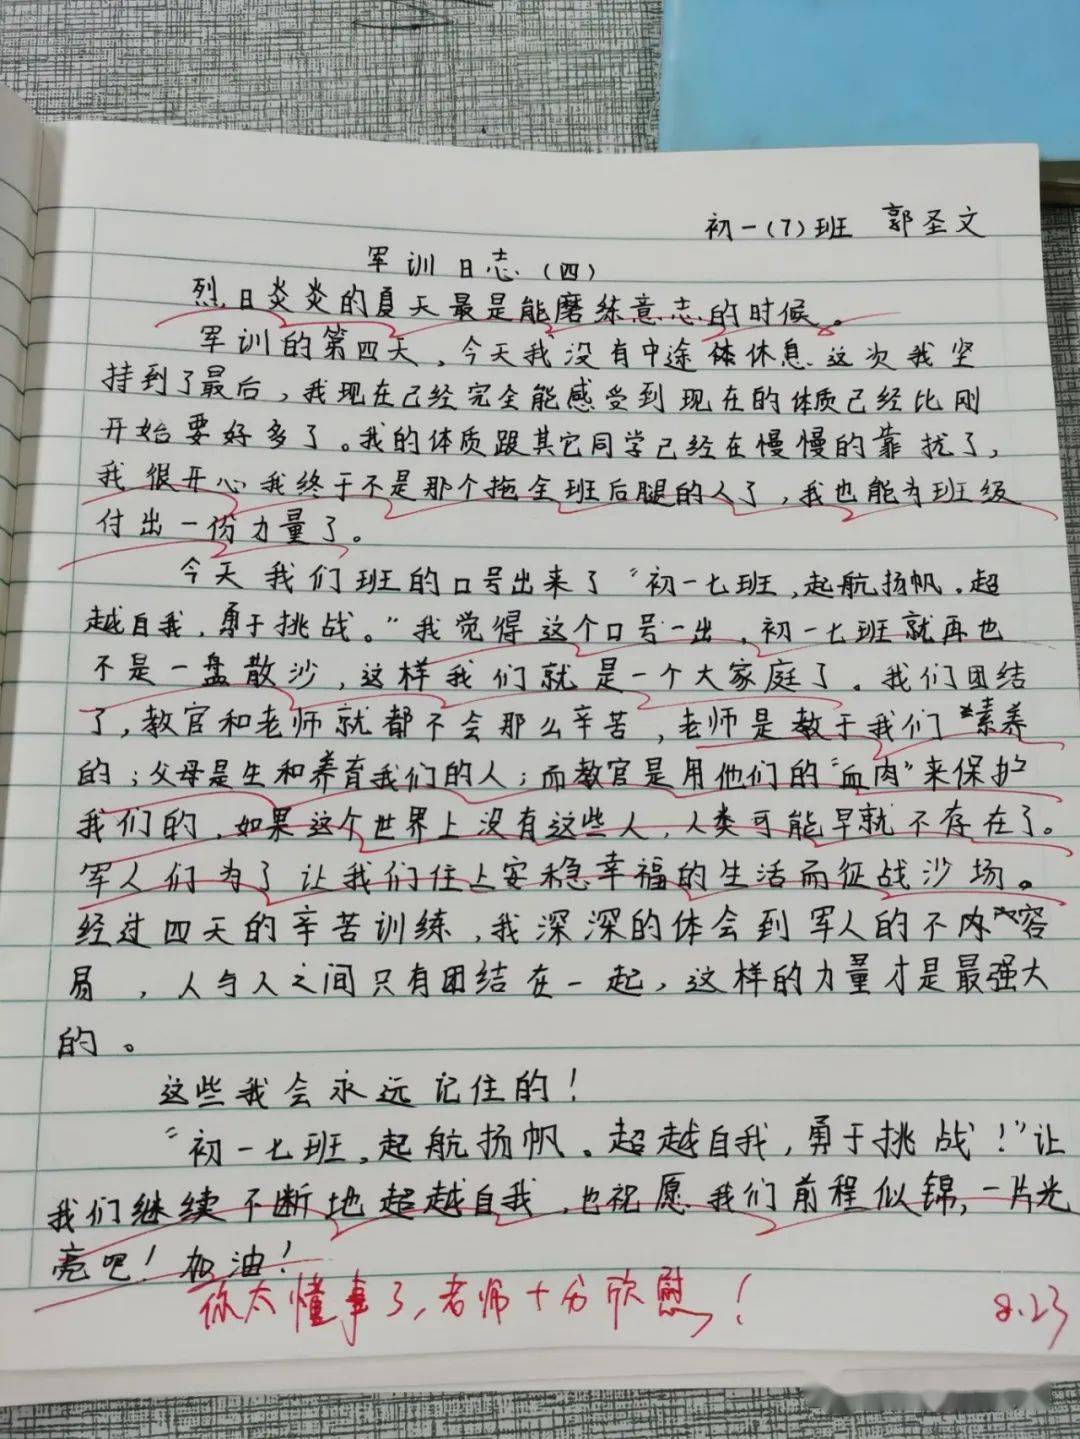 初一(7)班 郭圣文
军训日志(四)
烈日炎炎的夏天最是能磨练意志的时候。
军训的第四天，今天我没有中途体休息这次我坚
持到了最后，我现在已经完全能感受到现在的体质已经比刚
开始要好多了。我的体质跟其它同学已经在慢慢的靠拢了，
我很开心我终于不是那个拖全班后腿的人了，我也能为班级
付出一份力量了。
今天我们班的口号出来了“初一七班，起航扬帆。超
越自我，勇于挑战。”我觉得这个口号一出，初一七班就再也
不是一盘散沙，这样我们就是一个大家庭了。我们团结
了，教官和老师就都不会那么辛苦，老师是教于我们素养
的；父母是生和养育我们的人；而教官是用他们的“血肉”来保护
我们的，如果这个世界上没有这些人，人类可能早就不存在了。
军人们为了让我们住上安稳幸福的生活而征战沙场。
经过四天的辛苦训练，我深深的体会到军人的不容
易，人与人之间只有团结在一起，这样的力量才是最强大
的。
这些我会永远记住的！
“初一七班，起航扬帆。超越自我，勇于挑战！”让
我们继续不断地超越自我，也祝愿我们前程似锦，一片光
亮吧！加油！
你太懂事了，老师十分欣慰！ 8.23